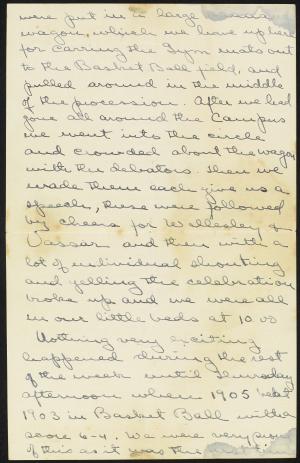 were put in a large
wagon, which we have up here
for carring the Gym mats out
to the Basket Ball field, and
pulled around in the middle
of the procession. After we had
gone all around the Campus
we went into the circle
and crowded about the wagon
with the debators. Then we
made them each give us a
speech, these were followed
by cheers for Wellesley &
Vassar and then with a
lot of individual shouting
and yelling the celebration
broke up and we were all
in our little beds at 10 00
Nothing very exciting
happened during the rest
of the week until Thursday
afternoon when 1905 beat
1903 in Basket Ball with a
score 6-4. We were very proud
of this as it was the first time